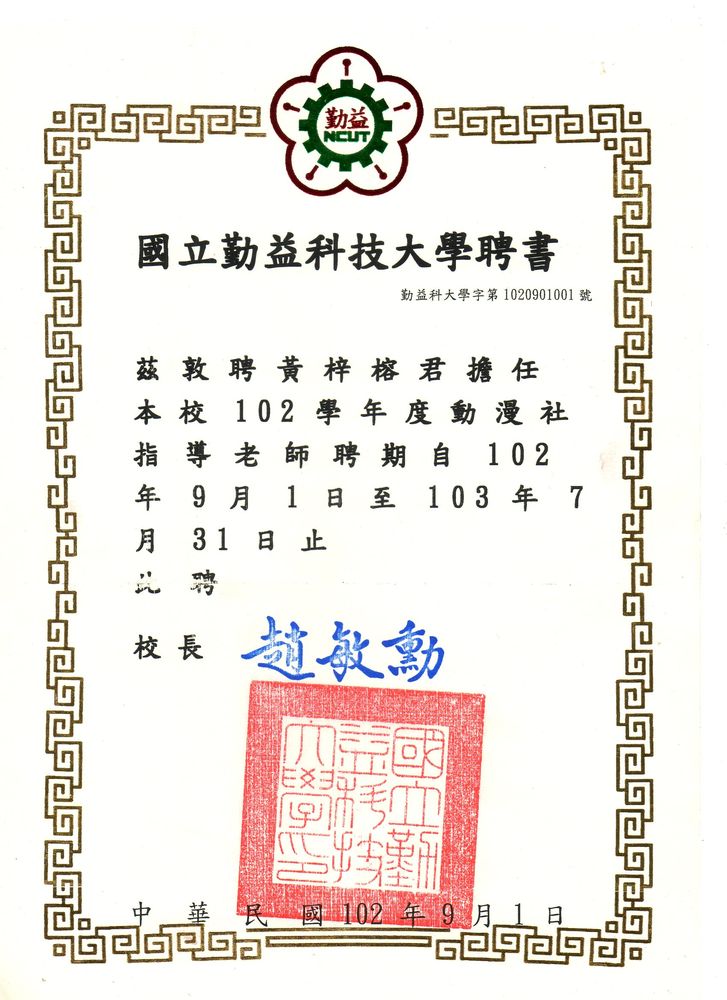 勤益
NCUT
國立勤益科技大學聘書
勤益科大學字第 1020901001 號
茲敦聘黃梓榕君擔任
本校 102 學年度動漫社
指導老師聘期自 102
年 9 月 1 日至 103 年 7
月 31 日止
此聘
校長 趙敏勳
國立勤益科技大學印
中華民國 102 年 9 月 1 日